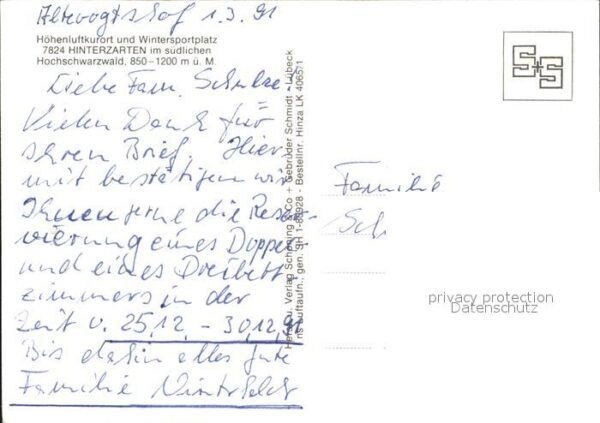 Altevogtshof 1.3.91
Höhenluftkurort und Wintersportplatz
7824 HINTERZARTEN im südlichen
Hochschwarzwald, 850–1200 m ü. M.
Liebe Fam. Schulze
Vielen Dank für
Ihren Brief, Hier
mit bestätigen wir
Ihnen gerne die Reser-
vierung eines Doppel-
und eines Dreibett
zimmers in der
Zeit v. 25.12. – 30.12.91
Bis dahin alles gute
Familie
Verlag Schöning & Co + Gebrüder Schmidt · Lübeck
Luftaufn., gen. SH 1-88928 - Bestellnr. Hinza LK 406571
S+S
Familie
Sch
privacy protection
Datenschutz